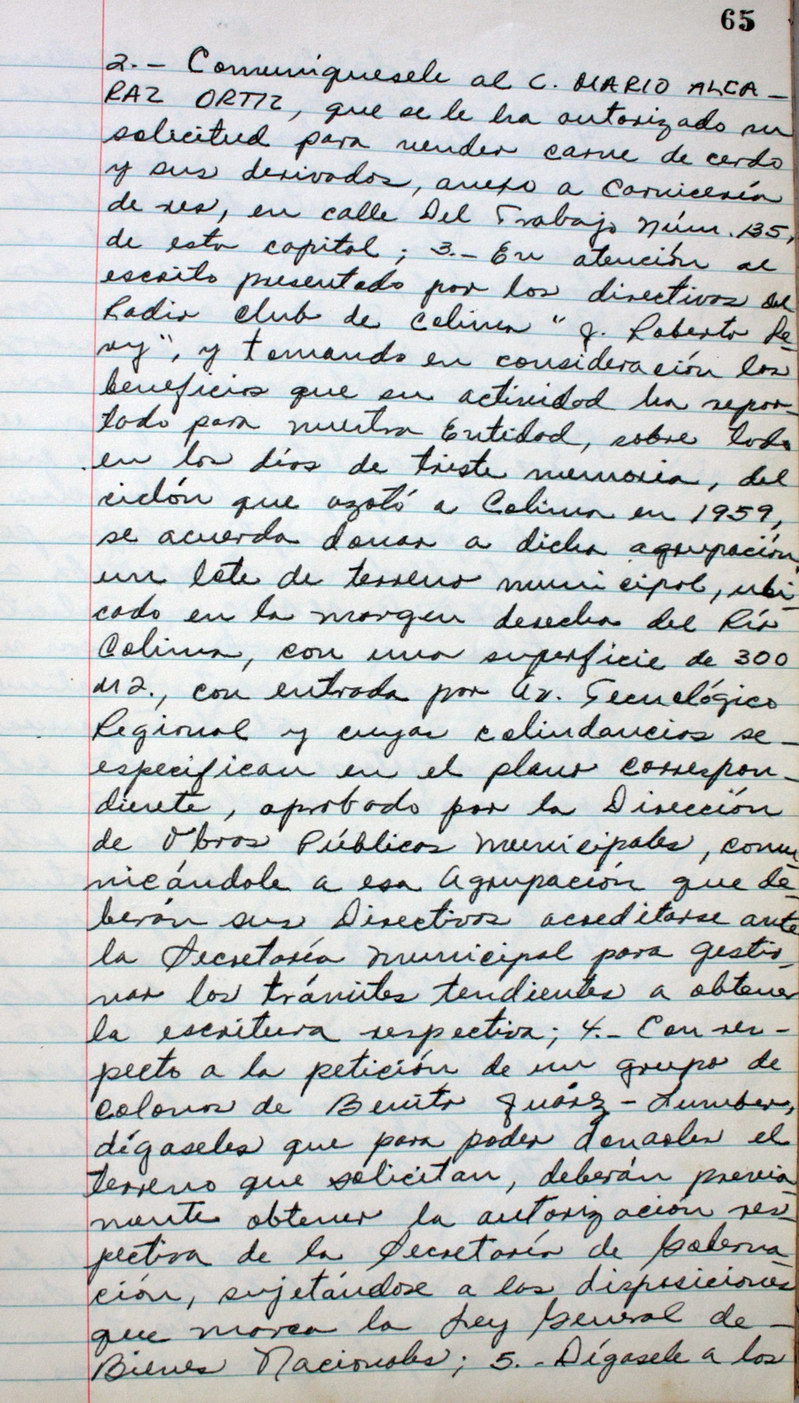 65
2.- Comuníquesele al C. MARIO ALCA-
RAZ ORTIZ, que se le ha autorizado su
solicitud para vender carne de cerdo
y sus derivados, anexo a Carnicería
de res, en calle Del Trabajo Núm. 135,
de esta capital; 3.- En atención al
escrito presentado por los directivos del
Radio Club de Colima "J. Roberto Le-
vy", y tomando en consideración los
beneficios que su actividad ha repor-
tado para nuestra Entidad, sobre todo
en los días de triste memoria, del
ciclón que azotó a Colima en 1959,
se acuerda donar a dicha agrupación
un lote de terreno municipal, ubi-
cado en la margen derecha del Río
Colima, con una superficie de 300
M2., con entrada por Av. Tecnológico
Regional y cuyas colindancias se-
especifican en el plano correspon-
diente, aprobado por la Dirección
de Obras Públicas Municipales, comu-
nicándole a esa Agrupación que de-
berán sus Directivos acreditarse ante
la Secretaría Municipal para gestio-
nar los trámites tendientes a obtener
la escritura respectiva; 4.- Con res-
pecto a la petición de un grupo de
colonos de Benito Juárez-Lumber,
dígaseles que para poder donarles el
terreno que solicitan, deberán previa-
mente obtener la autorización res-
pectiva de la Secretaría de Goberna-
ción, sujetándose a las disposiciones
que marca la Ley General de-
Bienes Nacionales; 5.- Dígasele a los